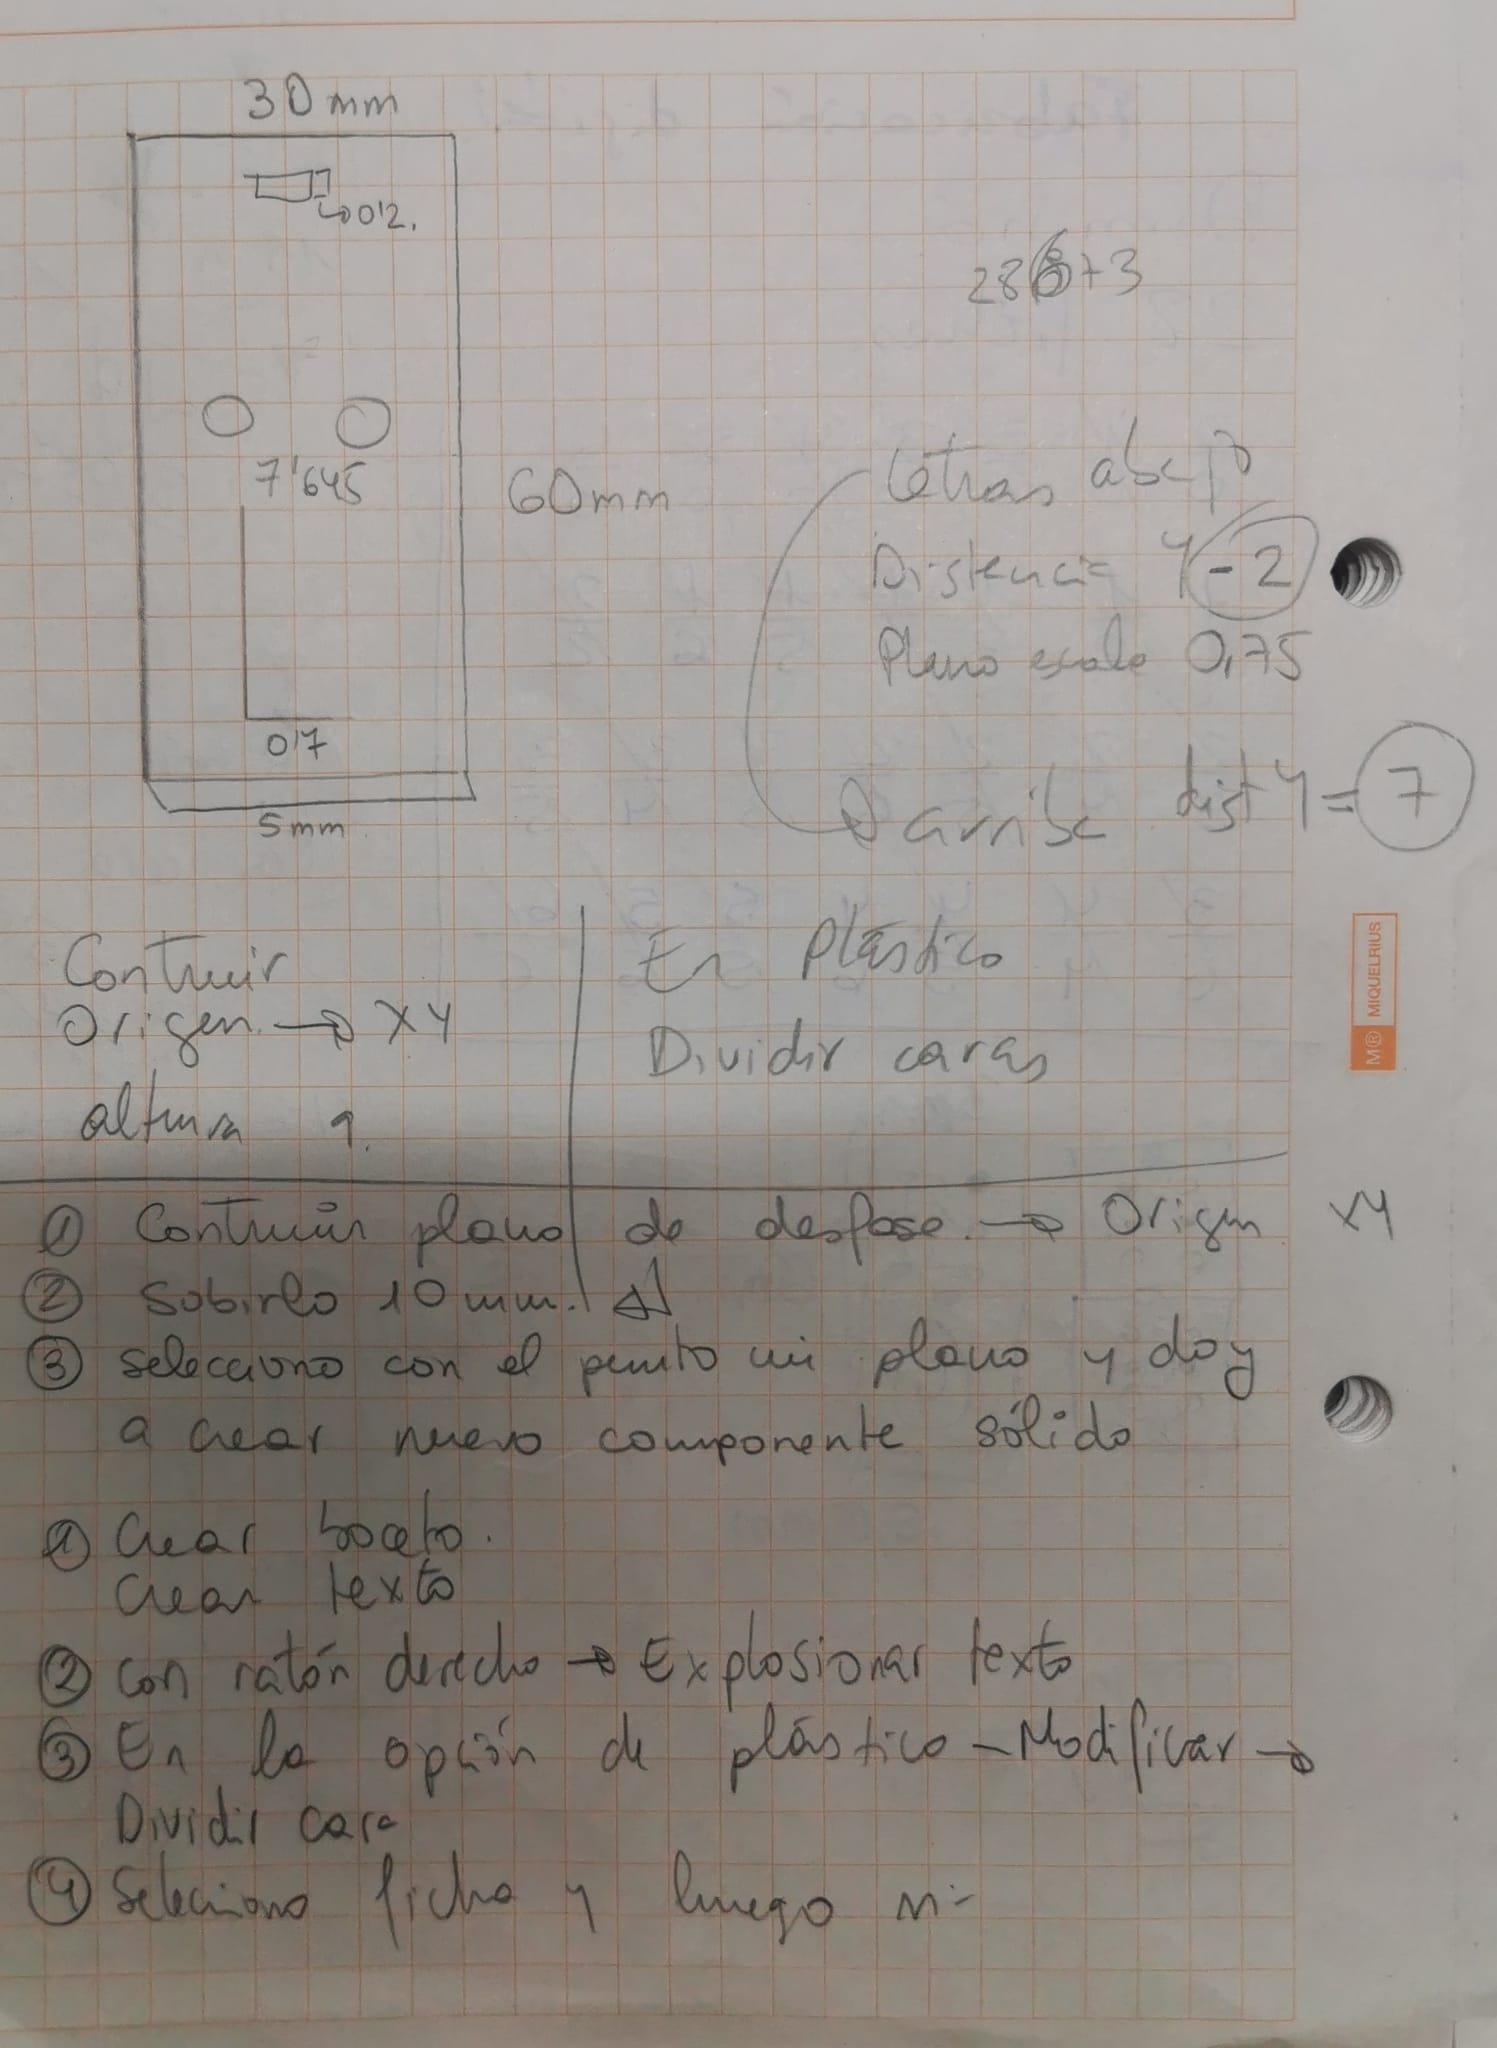 30mm
0'2.
7'645
60mm
0'7
5mm
28673
Letras abajo
Distancia Y -2
Plano escala 0,75
arriba dist Y = 7
Contruir
Origen → XY
altura
En Plástico
Dividir caras
MR MIQUELRIUS
① Contruir plano de desfase. → Origen XY
② Subirlo 10mm.
③ selecciono con el punto mi plano y doy
a crear nuevo componente sólido
① Crear boceto.
Crear texto
② Con ratón derecho → Explosionar texto
③ En la opción de plástico - Modificar →
Dividir cara
④ Selecciono ficha y luego